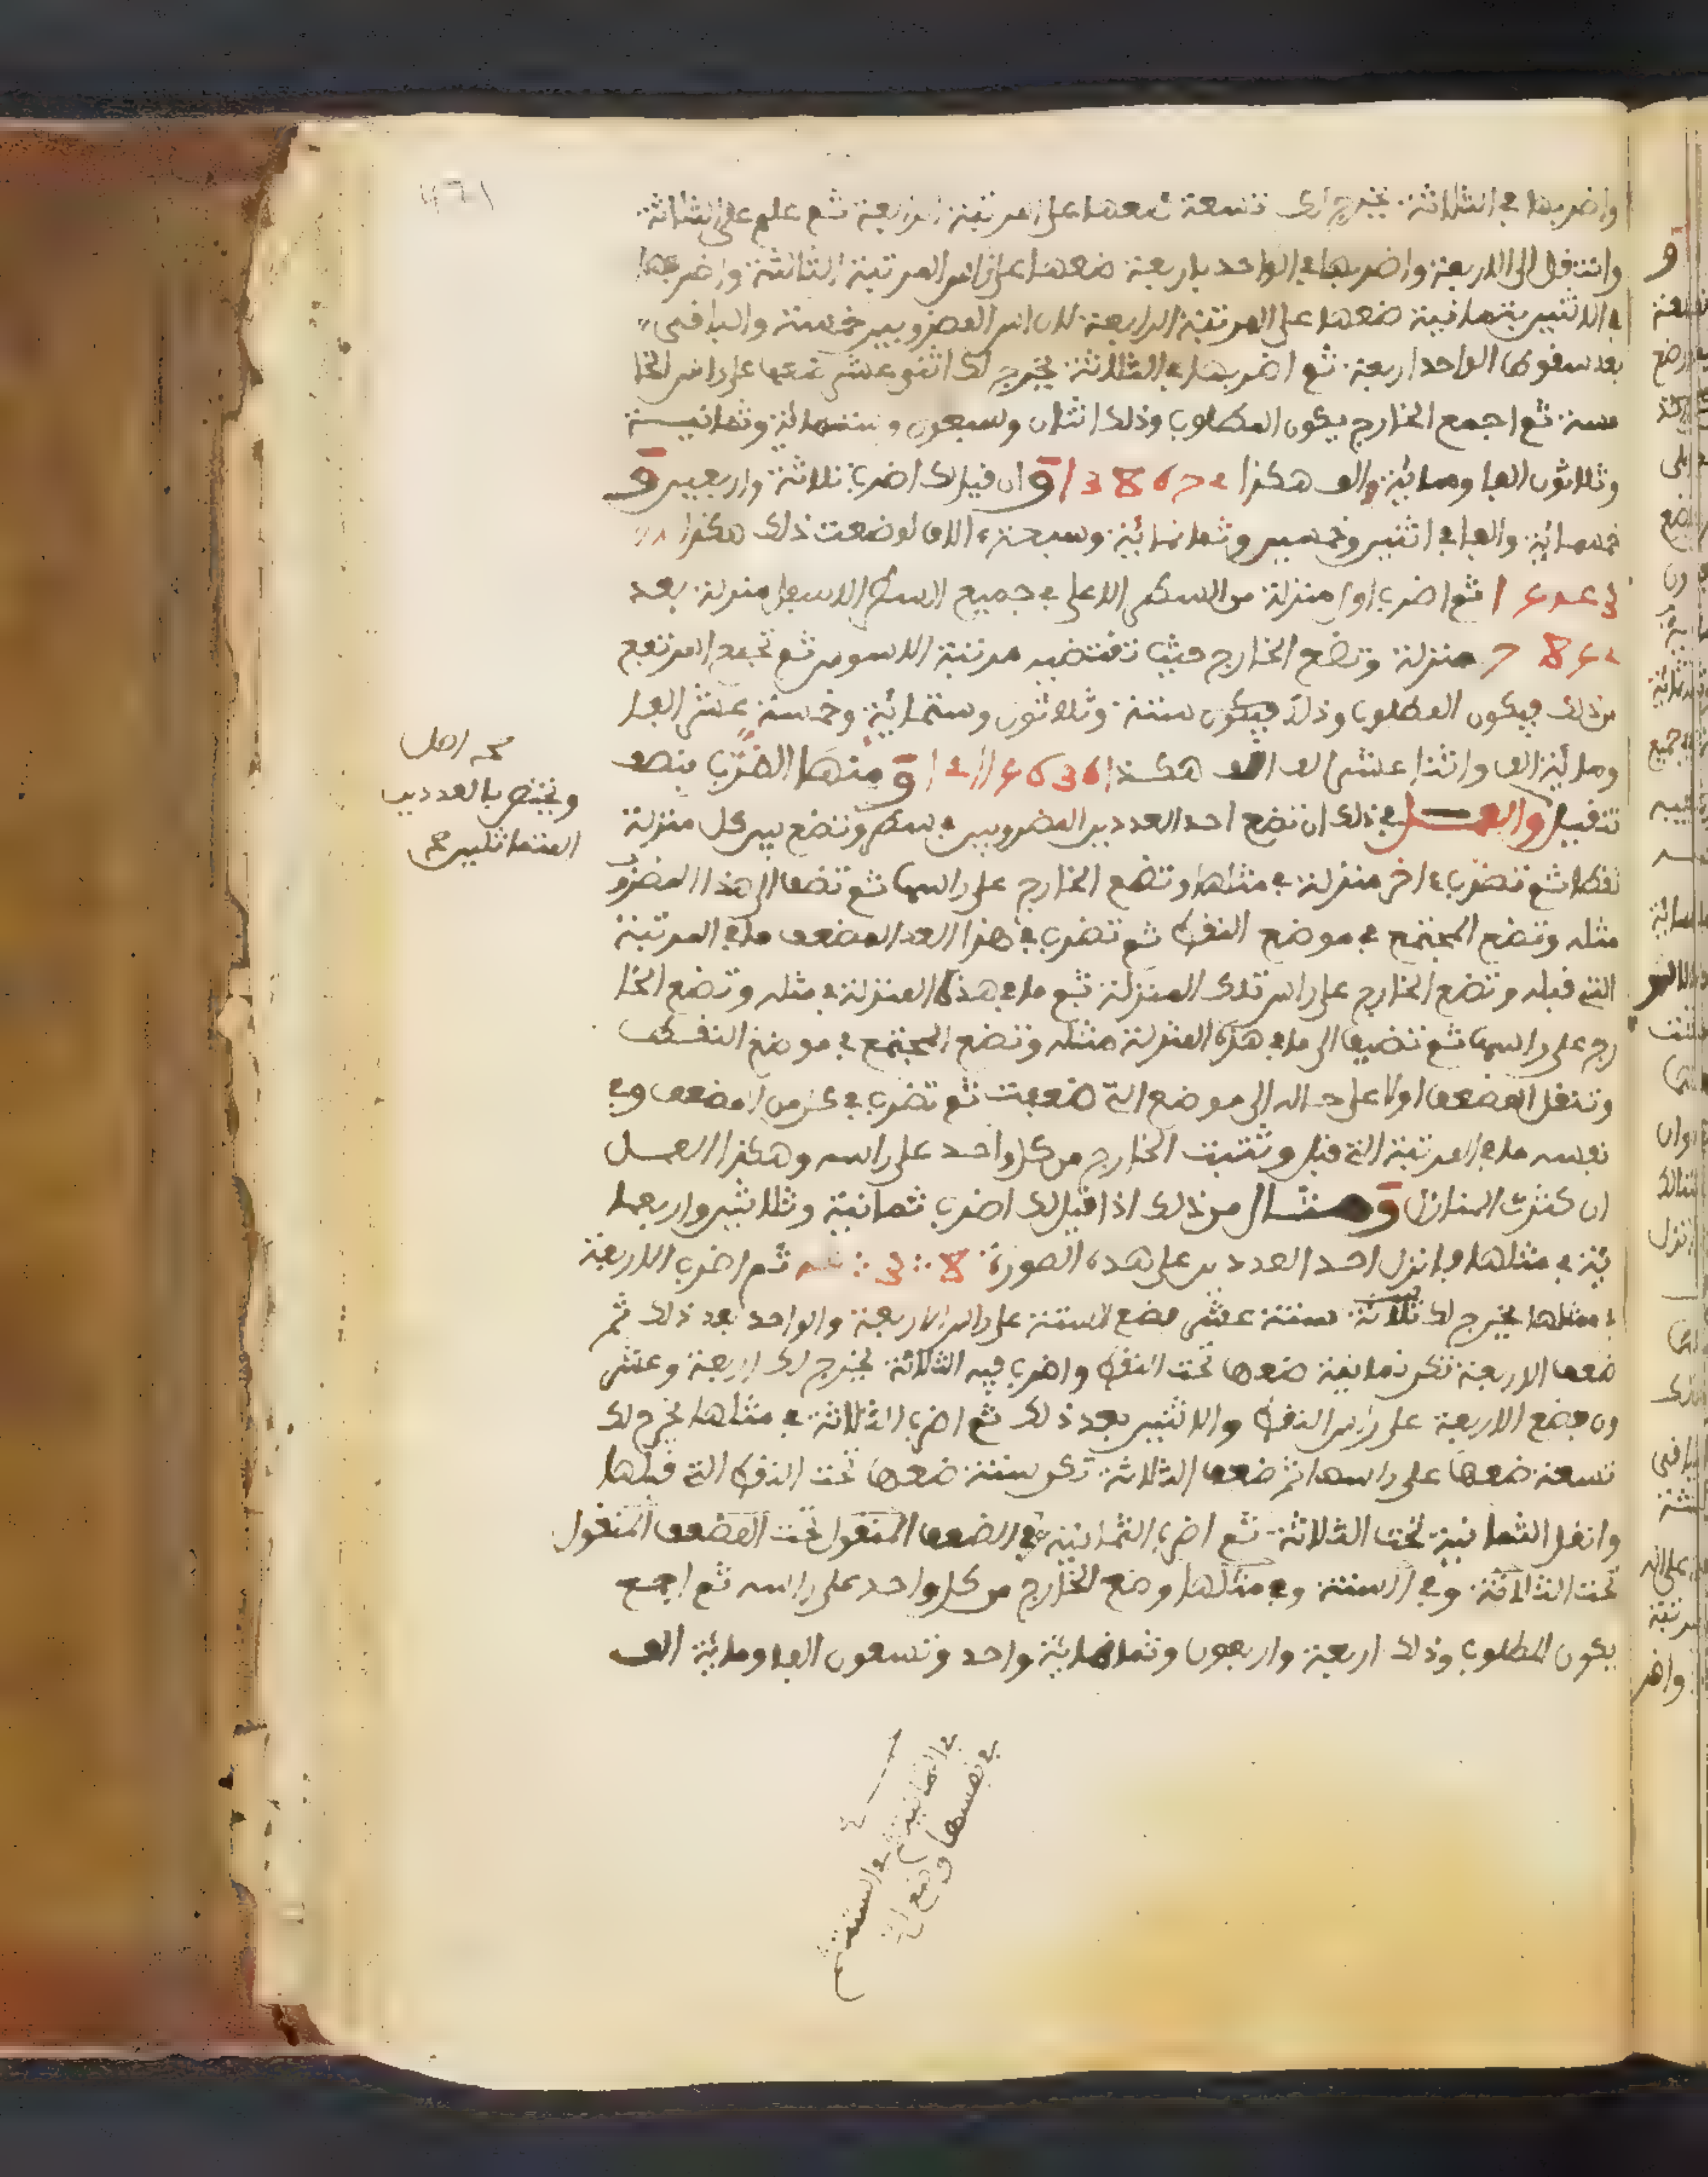 واضربها في الثلاثة يخرج لك تسعة ضعها على المرتبة الرابعة ثم علم على الثلاثة
وانتقل الى الاربعة واضربها في الواحد باربعة ضعها على راس المرتبة الثالثة واضربها
في الاثنين بثمانية ضعها على المرتبة الرابعة لان اس المضروبين خمسة والباقي
بعد سقوط الواحد اربعة ثم اضربها في الثلاثة يخرج لك اثنى عشر ضعها على راس الخا
مسة ثم اجمع الخارج يكون المطلوب وذلك اثنان وسبعون وستمائة وثمانيــة
وثلاثون الفا ومائة والف هكذا 1138672 وان قيل لك اضرب ثلاثة واربعين و
خمسمائة والفا في اثنين وخمسين وثمانمائة وسبعة ءالاف لوضعت ذلك هكذا
1543 ثم اضرب اول منزلة من السطر الاعلى في جميع السطر الاسفل منزلة بعد
7852 منزلة وتضع الخارج حيث تقتضيه مرتبة الاسوس ثم تجمع المرتفع
من ذلك فيكون المطلوب وذلك فيكون ستة وثلاثون وستمائة وخمسة عشر الفا
ومائة الف واثنا عشر الف الف هكذا 12115636 ومنها الضرب بنصف
تنقيل والعمــل في ذلك ان تضع احد العددين المضروبين في سطر وتضع بين كل منزلة
نقطا ثم تضرب ءاخر منزلة في مثلها وتضع الخارج على راسها ثم تضف الى هذا المضروب
مثله وتضع المجتمع في موضع النقط ثم تضرب في هذا العدد المضعف ما في المرتبة
التي قبله وتضع الخارج على راس تلك المنزلة ثم ما في هذه المنزلة في مثله وتضع الخا
رج على راسها ثم تضيف الى ما في هذه المنزلة مثله وتضع المجتمع في موضع النقــط
وتنقل المضعف اولا على حاله الى موضع التي ضعفت ثم تضرب في كل من المضعف وفي
نفسه ما في المرتبة التي قبل وتثبت الخارج من كل واحد على راسه وهكذا العمــل
ان كثرت المنازل ومثــال من ذلك اذا قيل لك اضرب ثمانية وثلاثين واربعما
ئة في مثلها فانزل احد العددين على هذه الصورة 8 ∴ 3 ∴ 4 ثم اضرب الاربعة
في مثلها يخرج لك ستة عشر فضع الستة على راس الاربعة والواحد بعد ذلك ثم
ضعف الاربعة تكن ثمانية ضعها تحت النقط واضرب فيه الثلاثة يخرج لك اربعة وعشر
ون فضع الاربعة على راس النقط والاثنين بعد ذلك ثم اضرب الثلاثة في مثلها يخرج لك
تسعة ضعها على راسها ثم ضعف الثلاثة تكن ستة ضعها تحت النقط التي قبلها
وانقل الثمانية تحت الثلاثة ثم اضرب الثمانية في الضعف المنقول تحت المضعف المنقول
تحت الثلاثة وفي الستة وفي مثلها وضع الخارج من كل واحد على راسه ثم اجمع
يكون المطلوب وذلك اربعة واربعون وثمانمائة وواحد وتسعون الفا ومائة الف
صح اصل
ويختص بالعددين
المتماثلين صح
في الثمانية ثم في الستة ثم
في نفسها وضع